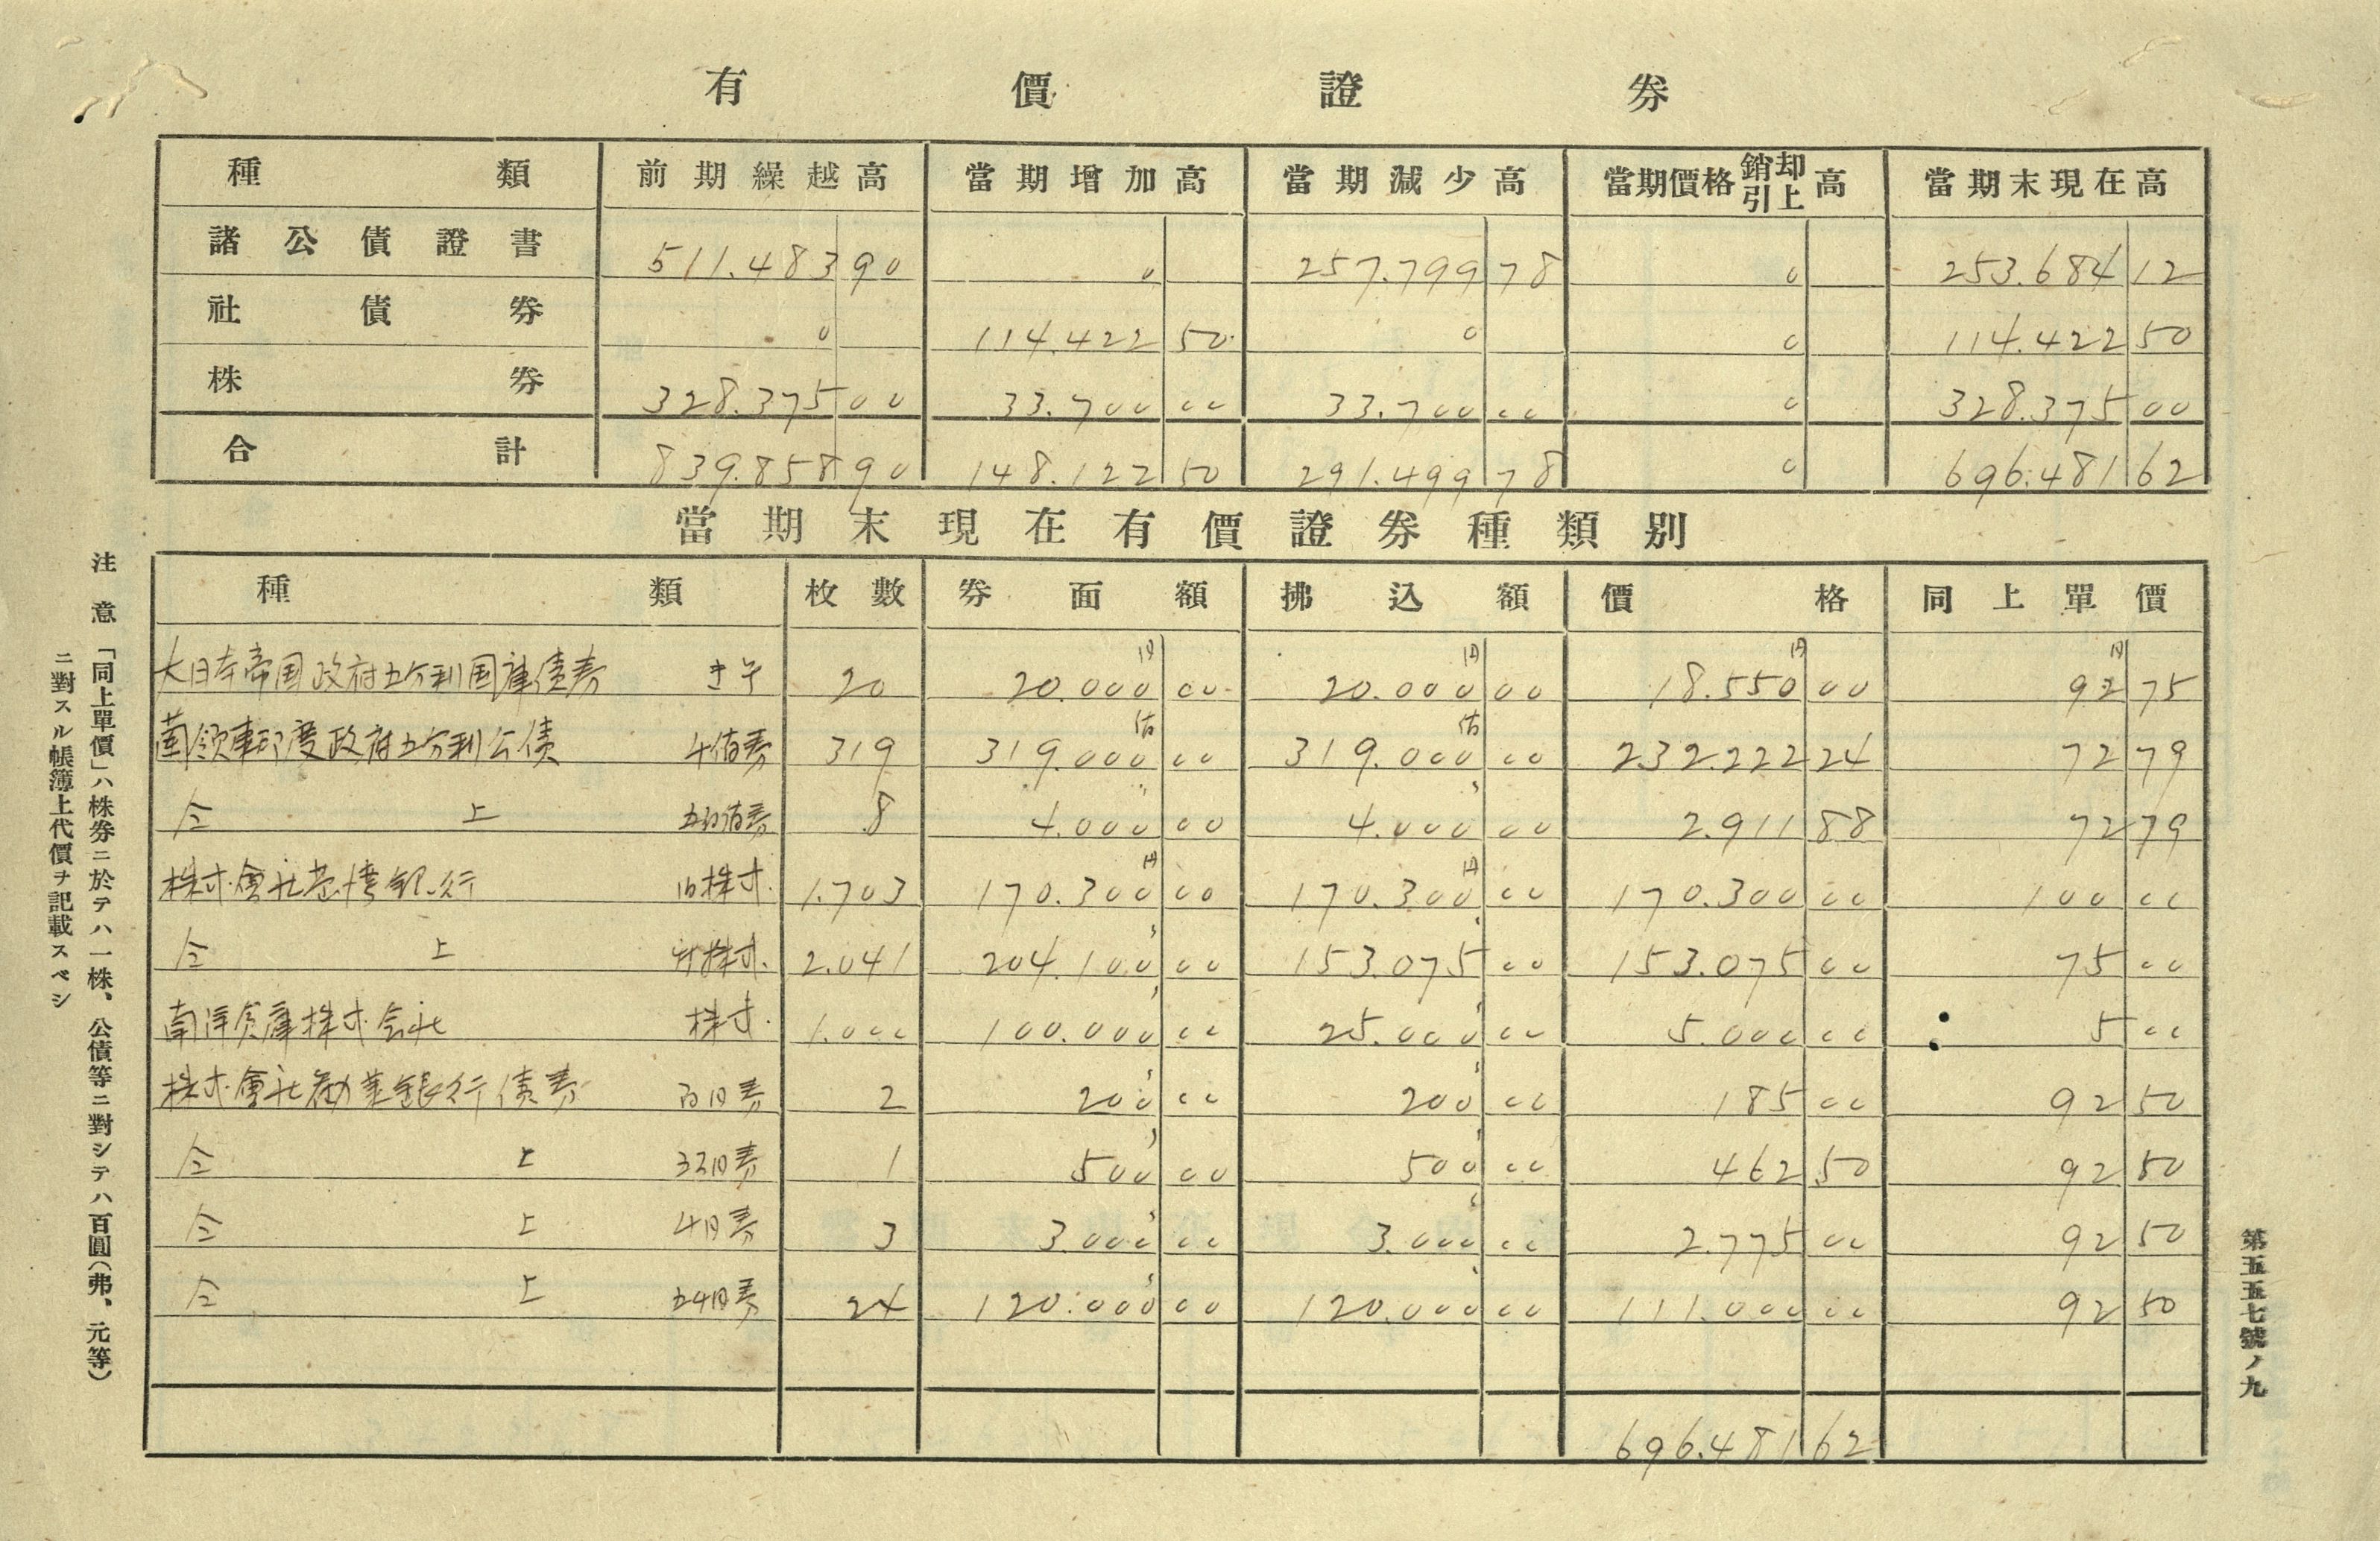 有價證券
種類 前期繰越高 當期増加高 當期減少高 當期價格銷却引上高 當期末現在高
諸公債證書 511.483 90 0 257.799 78 0 253.684 12
社債券 0 114.422 50 0 0 114.422 50
株券 328.375 00 33.700 00 33.700 00 0 328.375 00
合計 839.858 90 148.122 50 291.499 78 0 696.481 62
當期末現在有價證券種類別
種類 枚數 券面額 拂込額 價格 同上單價
大日本帝国政府五分利国庫債券 20 20.000 00 20.000 00 18.550 00 92 75
蘭領東印度政府五分利公債 千佰券 319 319.000 00 319.000 00 232.222 24 72 79
仝上 五百佰券 8 4.000 00 4.000 00 2.911 88 72 79
株式會社臺湾銀行 旧株式 1.703 170.300 00 170.300 00 170.300 00 100 00
仝上 新株式 2.041 204.100 00 153.075 00 153.075 00 75 00
南洋倉庫株式会社 株式 1.000 100.000 00 25.000 00 5.000 00 5 00
株式會社勧業銀行債券 百円券 2 200 00 200 00 185 00 92 50
仝上 五百円券 1 500 00 500 00 462 50 92 50
仝上 千円券 3 3.000 00 3.000 00 2.775 00 92 50
仝上 五千円券 24 120.000 00 120.000 00 111.000 00 92 50
696.481 62
注意「同上單價」ハ株券ニ於テハ一株、公債等ニ對シテハ百圓(弗、元等)
ニ對スル帳簿上代價ヲ記載スベシ
第五五七號ノ九